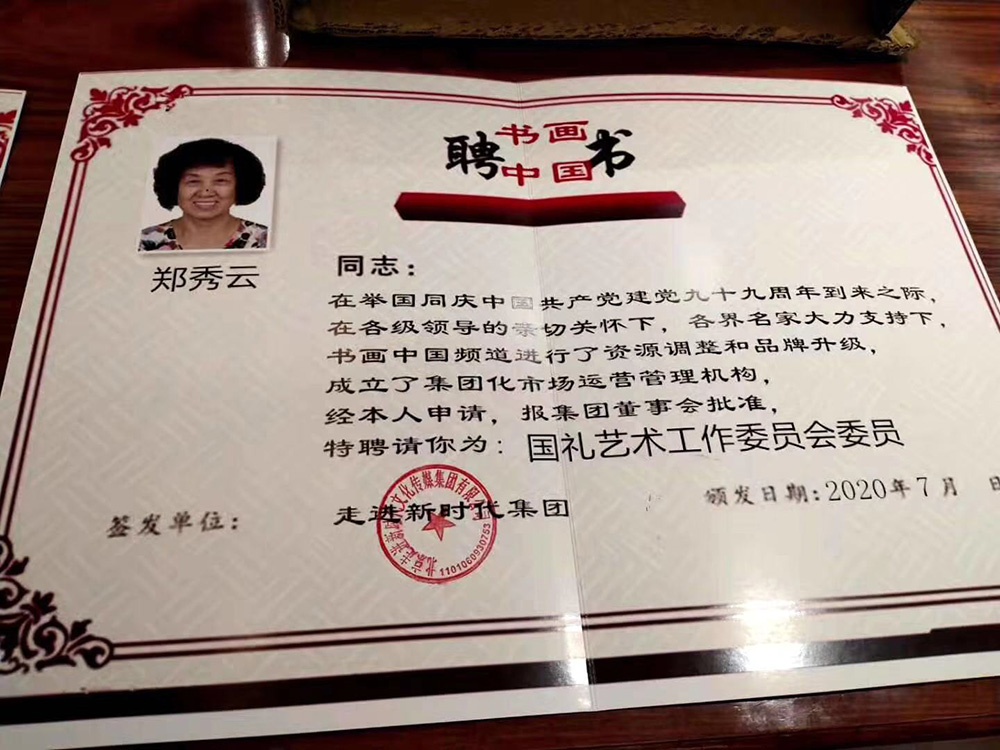 聘书
书画
中国
郑秀云
同志：
在举国同庆中国共产党建党九十九周年到来之际，
在各级领导的亲切关怀下，各界名家大力支持下，
书画中国频道进行了资源调整和品牌升级，
成立了集团化市场运营管理机构，
经本人申请，报集团董事会批准，
特聘请你为：国礼艺术工作委员会委员
颁发日期:2020年7月 日
签发单位： 走进新时代集团
文化传媒集团有限
1101060930753